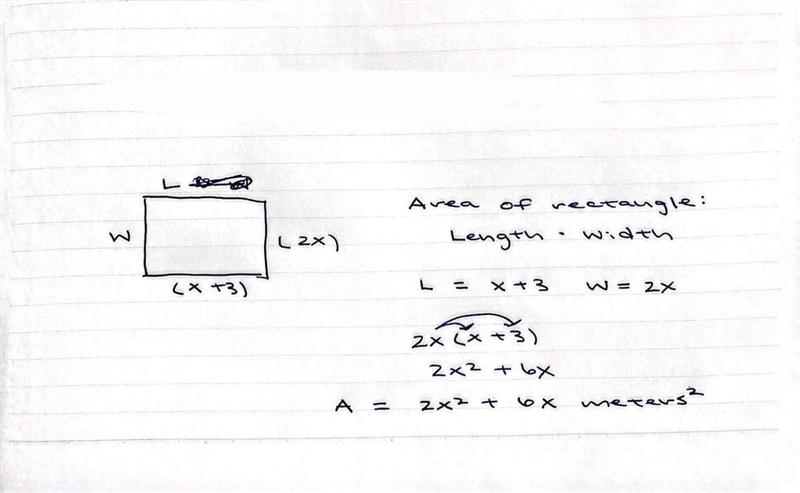 L
W
(2x)
(x+3)
Area of rectangle:
Length · Width
L = x+3 W = 2x
2x(x+3)
2x² + 6x
A = 2x² + 6x meters²